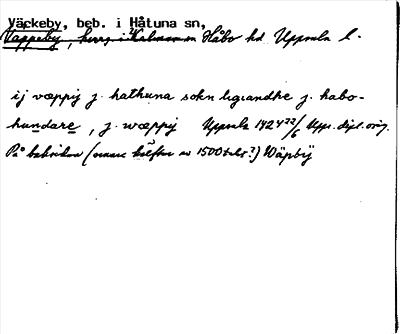 Väckeby, beb. i Håtuna sn,
Väppeby, herrg. i Kalmar sn Håbo hd Uppsala l.
ij væppij j hathuna sokn liggiandhe j habo-
hundare, j wæppij Uppsala 1424 22/6 Upps. dipl. orig.
På baksidan (senare hälften av 1500 talet?) Wäpbÿ